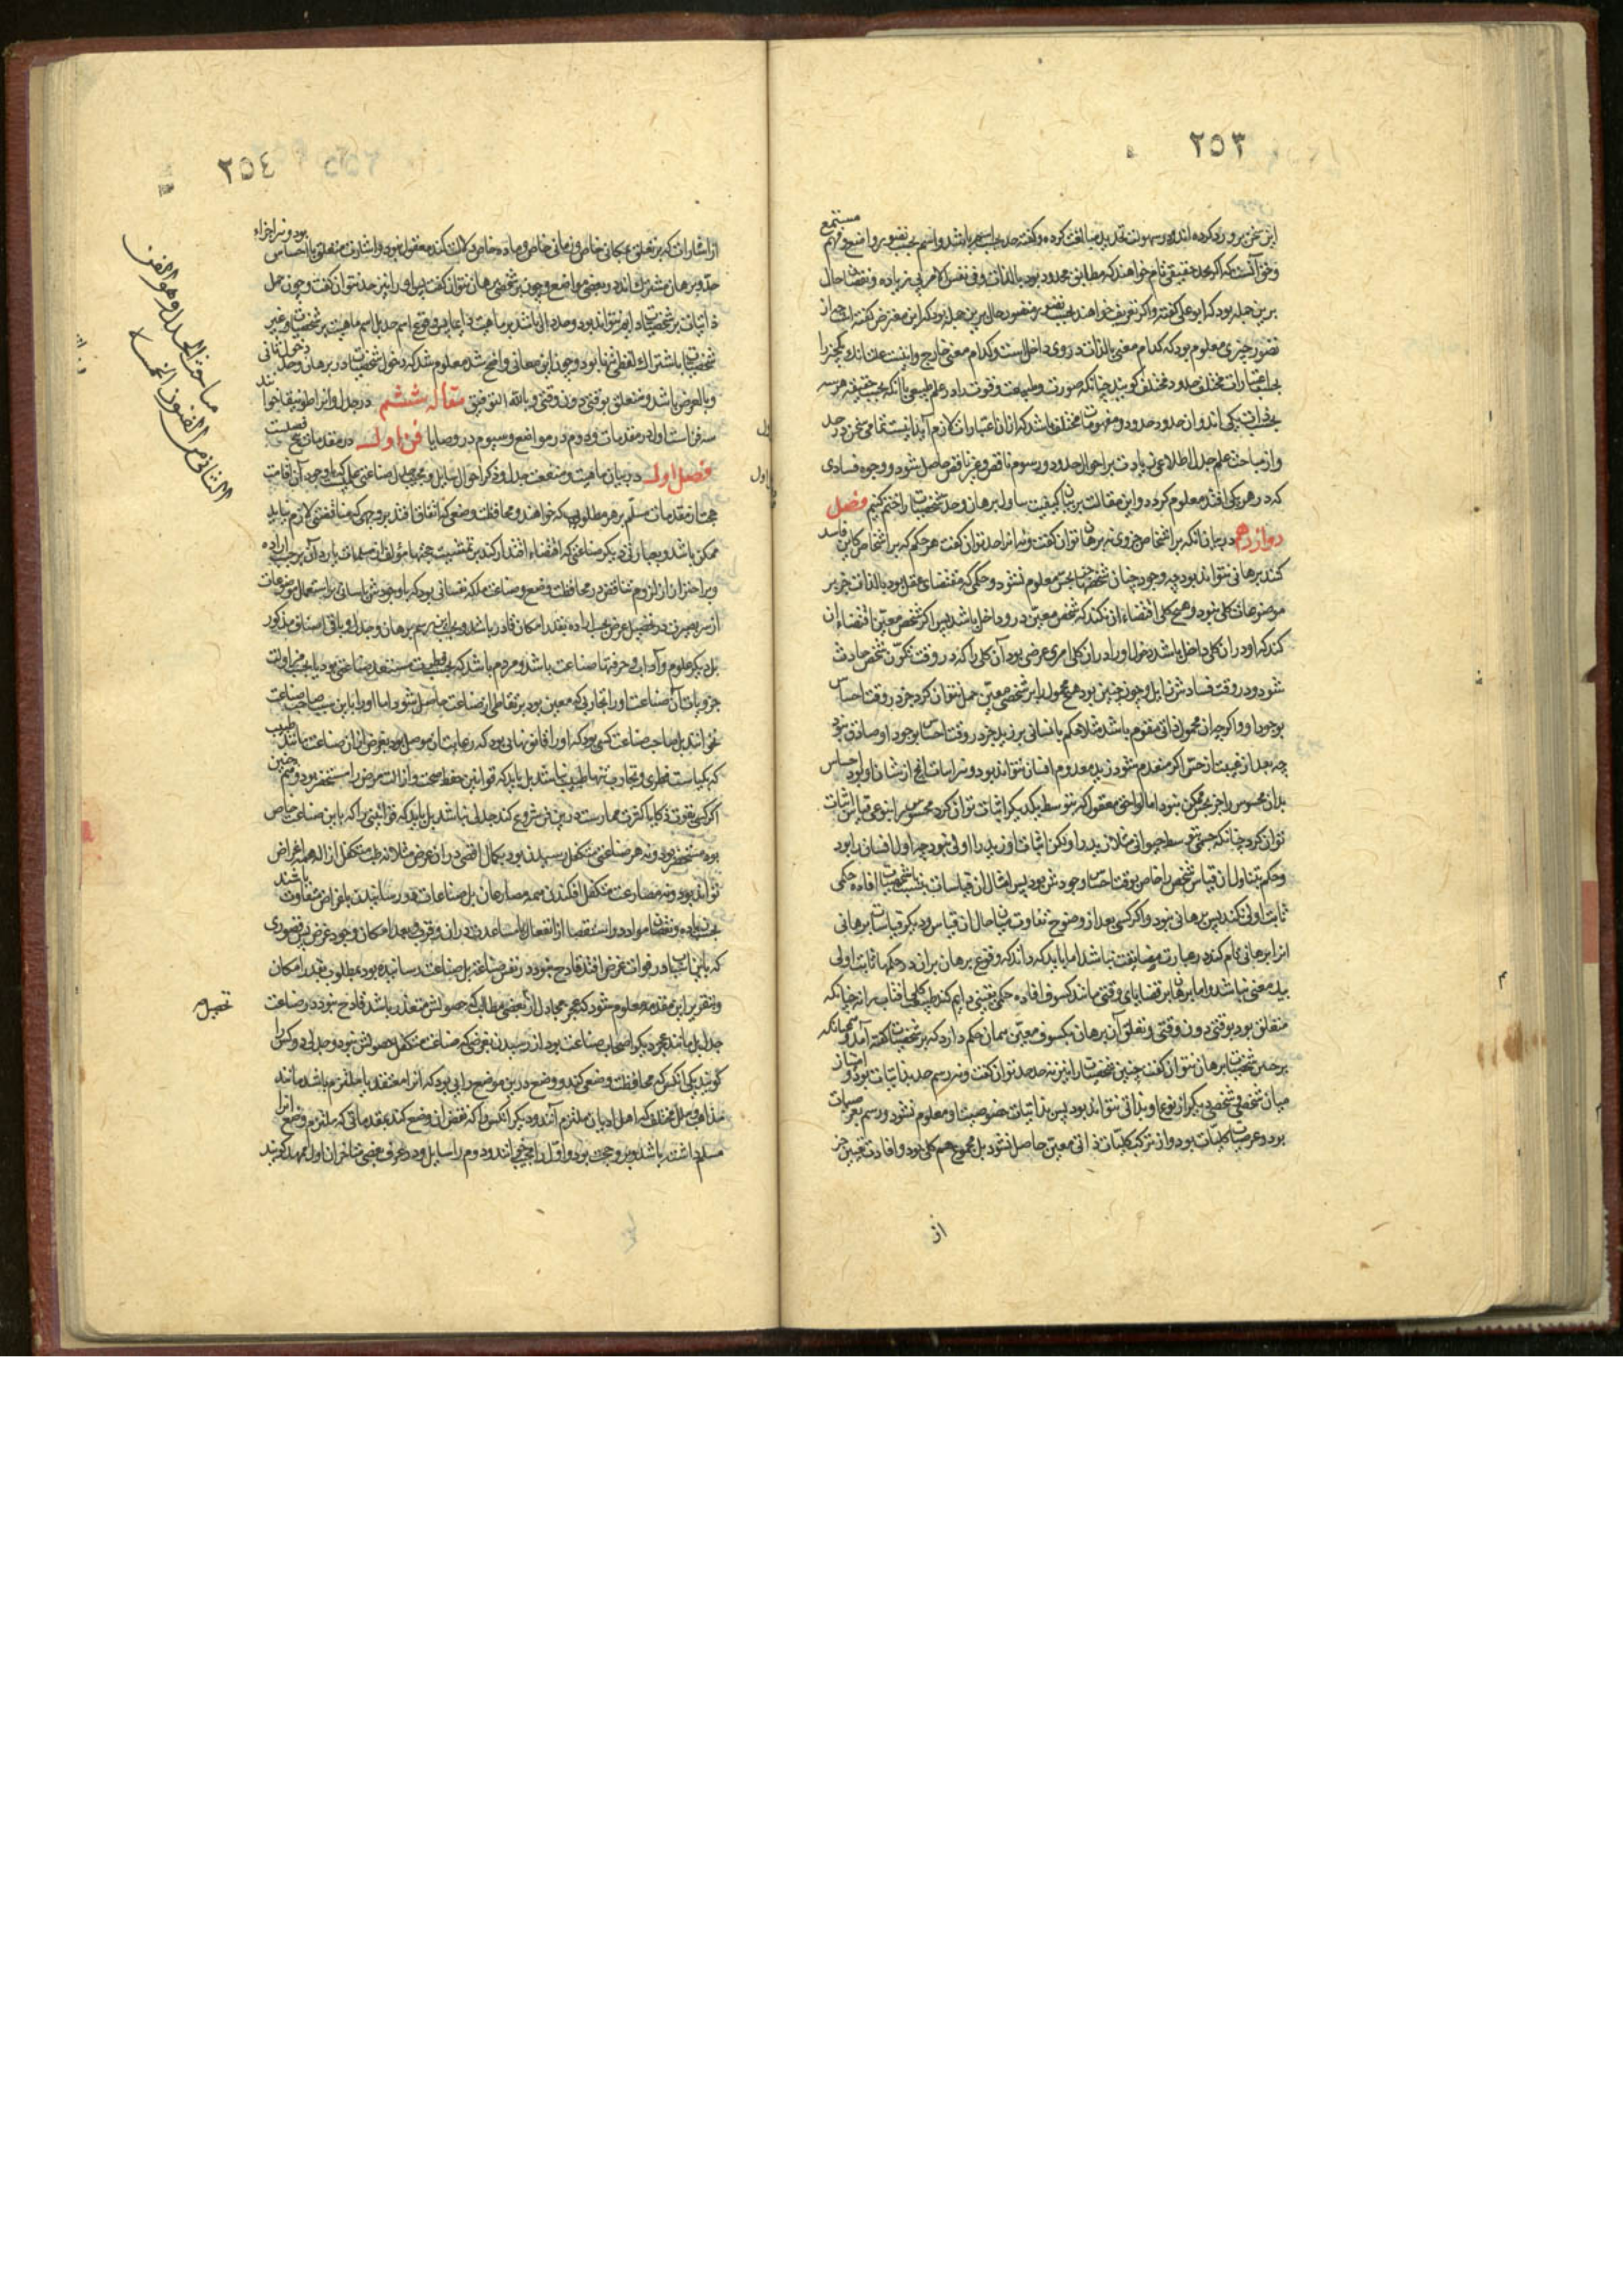 ٢٥٣
این سخن برو رد کرده‌اند و در سهولت تحدید مبالغت کرده و گفته حد بحسب اسم باشد و اسم بحسب تصور واضع و فهم مستمع
و حق آنست که اگر بحد حقیقی تام خواهند که مطابق محدود بود بالذات و فی نفس الامر بی زیاده و نقصان حال
برین جمله بود که ابوعلی گفته و اگر تعریف خواهند بحسب تصور حال برین جمله بود که این معترض گفته است چه از
تصور چیزی معلوم بود که کدام معنی بالذات در وی داخل است و کدام معنی خارج و اینست علت آنک یکچیز را
بحسب اعتبارات مختلف حدود مختلف گویند چنانکه صورت و طبیعت و قوت را در علم طبیعی با آنکه بحقیقت هر سه
یکی‌اند و آن حدود حدود مفهومات مختلف باشد که از آن اعتبارات لازم آید اینست تمامی سخن در حد
و از مباحث علم جدل اطلاعی زیادت بر احوال حدود و رسوم ناقص و غیر ناقص حاصل شود و وجوه فسادی
که در هر یکی افتد معلوم گردد و این مقالت بر بیان کیفیت تناول برهان و حد شخصیات را ختم کنیم فصل
دوازدهم در بیان آنکه بر اشخاص جزوی نه برهان توان گفت و نه آنرا حد توان گفت هر حکم که بر اشخاص کاین فاسد
کنند برهانی نتواند بود چه وجود چنان شخصها جز بحس معلوم نشود و حکمی که مقتضای عقل بود بالذات جز بر
موضوعات کلی نبود و هیچ کلی اقتضاء آن نکند که شخص معین در و داخل باشد پس اگر شخص معین اقتضاء آن
کند که او در آن کلی داخل باشد دخول او در آن کلی امری عرضی بود آن کلی را که در وقت تکون شخص حادث
شود و در وقت فسادش زایل و چون چنین بود هیچ محمول را بر شخصی معین حمل نتوان کرد جز در وقت احساس
بوجود او و اگر چه آن محمول ذاتی مقوم باشد مثلا حکم بانسانی بر زید جز در وقت احساس بوجود او صادق نبود
چه بعد از غیبت از حس اگر منعدم شود زید معدوم انسان نتواند بود
توان کرد چنانکه جسمی بتوسط حیوان مثلا زید را
و حکم بتناول آن قیاس شخص را خاص بوقت احساس وجودش بود پس امثال آن قیاسات بنسبت با شخصیات افاده حکمی
ثابت اولی نکند پس برهانی نبود و اگر کسی بعد از وضوح تفاوت میان حال آن قیاس و دیگر قیاسات برهانی
آنرا برهانی نام کند در عبارت مضایقت نباشد اما باید که داند که وقوع برهان بر آن در حکمها ثابت اولی
بیک معنی نباشد و اما برهان بر قضایای وقتی مانند کسوف افاده حکمی یقینی دایم کند
متعلق بود بوقتی دون وقتی و تعلق آن برهان بکسوف معین همان حکم دارد که بر شخصیات گفته آمد و همچنانکه
بر چنین شخصیات برهان نتوان گفت چنین شخصیات را نیز نه حد توان گفت و نه رسم حد بذاتیات بود و امتیاز
میان شخصی و شخصی دیگر از نوع او بذاتی نتواند بود پس بذاتیات خصوصیت او معلوم نشود و رسم بعرضیات
بود و عرضیات کلیات بود و از ترکب کلیات ذاتی معین حاصل نشود بل مجموع هم کلی بود و افادت تعیین جز
از
٢٥٤
از اشارات که بر تعلق بمکانی خاص و زمانی خاص و ماده خاص دلالت کند معقول نبود و اشارت متعلق باحساس بود و نیز اجزاء
حد و برهان مشترک‌اند در بعضی مواضع و چون بر شخصی برهان نتوان گفت پس او را نیز حد نتوان گفت و چون حمل
ذاتیات بر شخصیات دایم نتواند بود و حد دال باشد بر ماهیت دایما پس وقوع اسم حد بل اسم ماهیت بر شخصیات و غیر
شخصیات باشتراک لفظی تنها بود و چون این معانی واضح شد معلوم شد که دخول شخصیات در برهان و حد دخول ثانی
و بالعرض باشد و متعلق بوقتی دون وقتی و بالله التوفیق مقاله ششم در جدل و آنرا طوبیقا خوانند
سه فن است اول در مقدمات و دوم در مواضع و سیوم در وصایا فن اول در مقدمات پنج فصلست
فصل اول در بیان ماهیت و منفعت جدل و ذکر احوال سایل و مجیب جدل صناعتی علمیست که با وجود آن اقامت
حجت از مقدمات مسلم بر هر مطلوب که خواهند و محافظت وضعی که اتفاق افتد بر وجهی که مناقضتی لازم نیاید
ممکن باشد و بعبارتی دیگر صناعتی که اقتضاء اقتدار کند بر تمشیت حجتها مؤلف از مسلمات یا رد آن بر حسب اراده
و بر احتراز از لزوم تناقض در محافظت وضع و صناعت ملکه نفسانی بود که با وجودش باسانی بر استعمال موضوعات
از سر بصیرت در تحصیل غرض بحسب اراده بقدر امکان قادر باشد و بحسب این رسم برهان و جدل و باقی اصناف مذکور
بل دیگر علوم و آداب و حرفتها صناعت باشد و مردم باشد که بحسب فطرت مستعد صناعتی بود یا بحسب مزاولت
جزویات آن صناعت او را تجاربی که معین بود بر تعاطی آن صناعت حاصل شود اما او را باین سبب صاحب صناعت
نخوانند بل صاحب صناعت کسی بود که او را قانونهایی بود که رعایت آن موصل بود بغرض از آن صناعت مانند طبیب
که بکیاست فطری و تجارب تنها طبیب نباشد بل باید که قوانین حفظ صحت و ازالت مرض را مستحضر بود و همچنین
اگر کسی بقوت ذکا یا کثرت ممارست درین فن شروع کند جدلی نباشد بل باید که قوانینی را که باین صناعت خاص
بود مستحضر بود و نه هر صناعتی متکفل رسیدن بود بکمال اقصی در آن غرض مثلا نه طب متکفل ازاله همه امراض
تواند بود و نه مصارعت متکفل افکندن همه مصارعان بل صناعات در رسانیدن باغراض متفاوت باشند
بحسب زیاده و نقصان مواد
که باین اسباب در فوات غرض افتد قادح نبود در نفس صناعت بل صناعت رساننده بود بمطلوب بقدر امکان
و بتقریر این مقدمه معلوم شود که عجز مجادل از بعضی مطالب که حصولش متعذر باشد قادح نبود در صناعت
جدل بل مانند عجز دیگر اصحاب صناعت بود از رسیدن بغرضی که صناعت متکفل حصولش نبود و جدلی دو کس را
گویند یکی آنکس که محافظت وضعی کند و وضع درین موضع رایی بود که آنرا معتقد یا ملتزم باشد مانند
مذاهب و ملل مختلف که اهل ادیان ملتزم آنند و دیگر آنکس را که نقض آن وضع کند بمقدماتی که ملتزم وضع آنرا
مسلم داشته باشد و برو حجت بود و اول را مجیب خوانند و دوم را سایل و در عرف بعضی متاخران اول را ممهد گویند
مباحث الجدل و هو الفن
الثانی من الفنون الخمسة
تحصیل